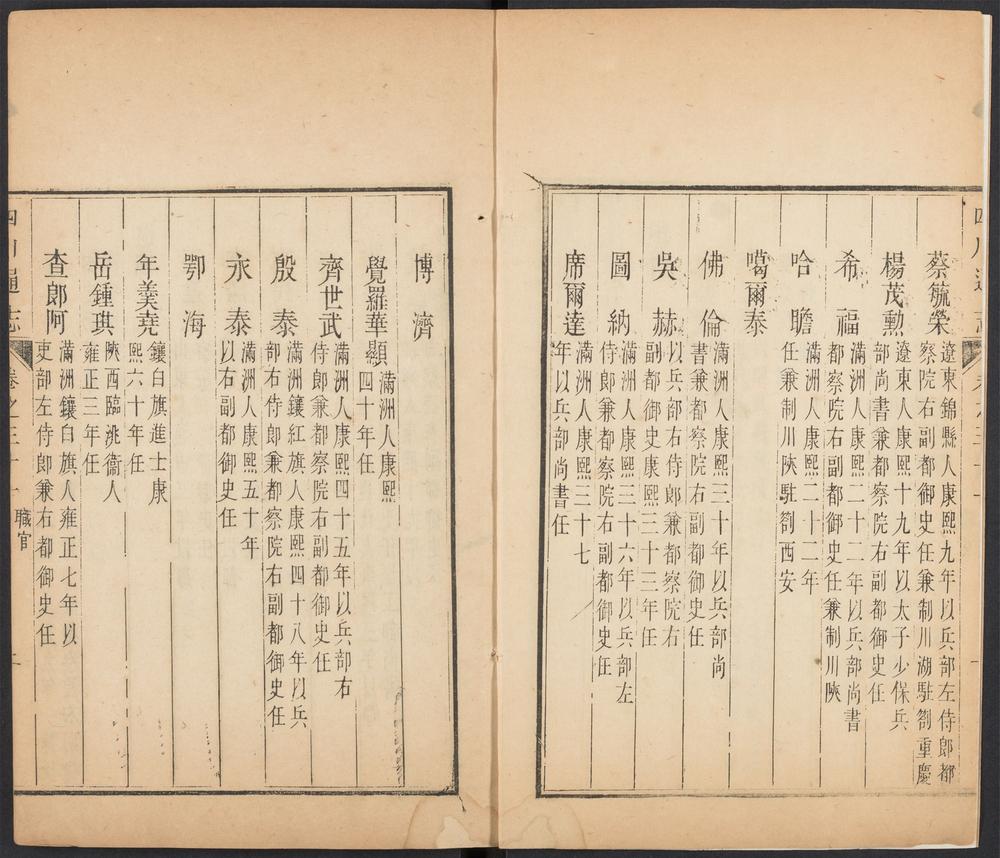 蔡毓榮
遼東錦縣人康熙九年以兵部左侍郎都
察院右副都御史任兼制川湖駐劄重慶
楊茂勳
遼東人康熙十九年以太子少保兵
部尚書兼都察院右副都御史任
希福
滿洲人康熙二十二年以兵部尚書
都察院右副都御史任兼制川陝
哈瞻
滿洲人康熙二十二年
任兼制川陝駐劄西安
噶爾泰
佛倫
滿洲人康熙三十年以兵部尚
書兼都察院右副都御史任
吳赫
以兵部右侍郎兼都察院右
副都御史康熙三十三年任
圖納
滿洲人康熙三十六年以兵部左
侍郎兼都察院右副都御史任
席爾達
滿洲人康熙三十七
年以兵部尚書任
博濟
覺羅華顯
滿洲人康熙
四十年任
齊世武
滿洲人康熙四十五年以兵部右
侍郎兼都察院右副都御史任
殷泰
滿洲鑲紅旗人康熙四十八年以兵
部右侍郎兼都察院右副都御史任
永泰
滿洲人康熙五十年
以右副都御史任
鄂海
年羹堯
鑲白旗進士康
熙六十年任
岳鍾琪
陝西臨洮衞人
雍正三年任
查郎阿
滿洲鑲白旗人雍正七年以
吏部左侍郎兼右都御史任
四川通志
卷之三十
職官